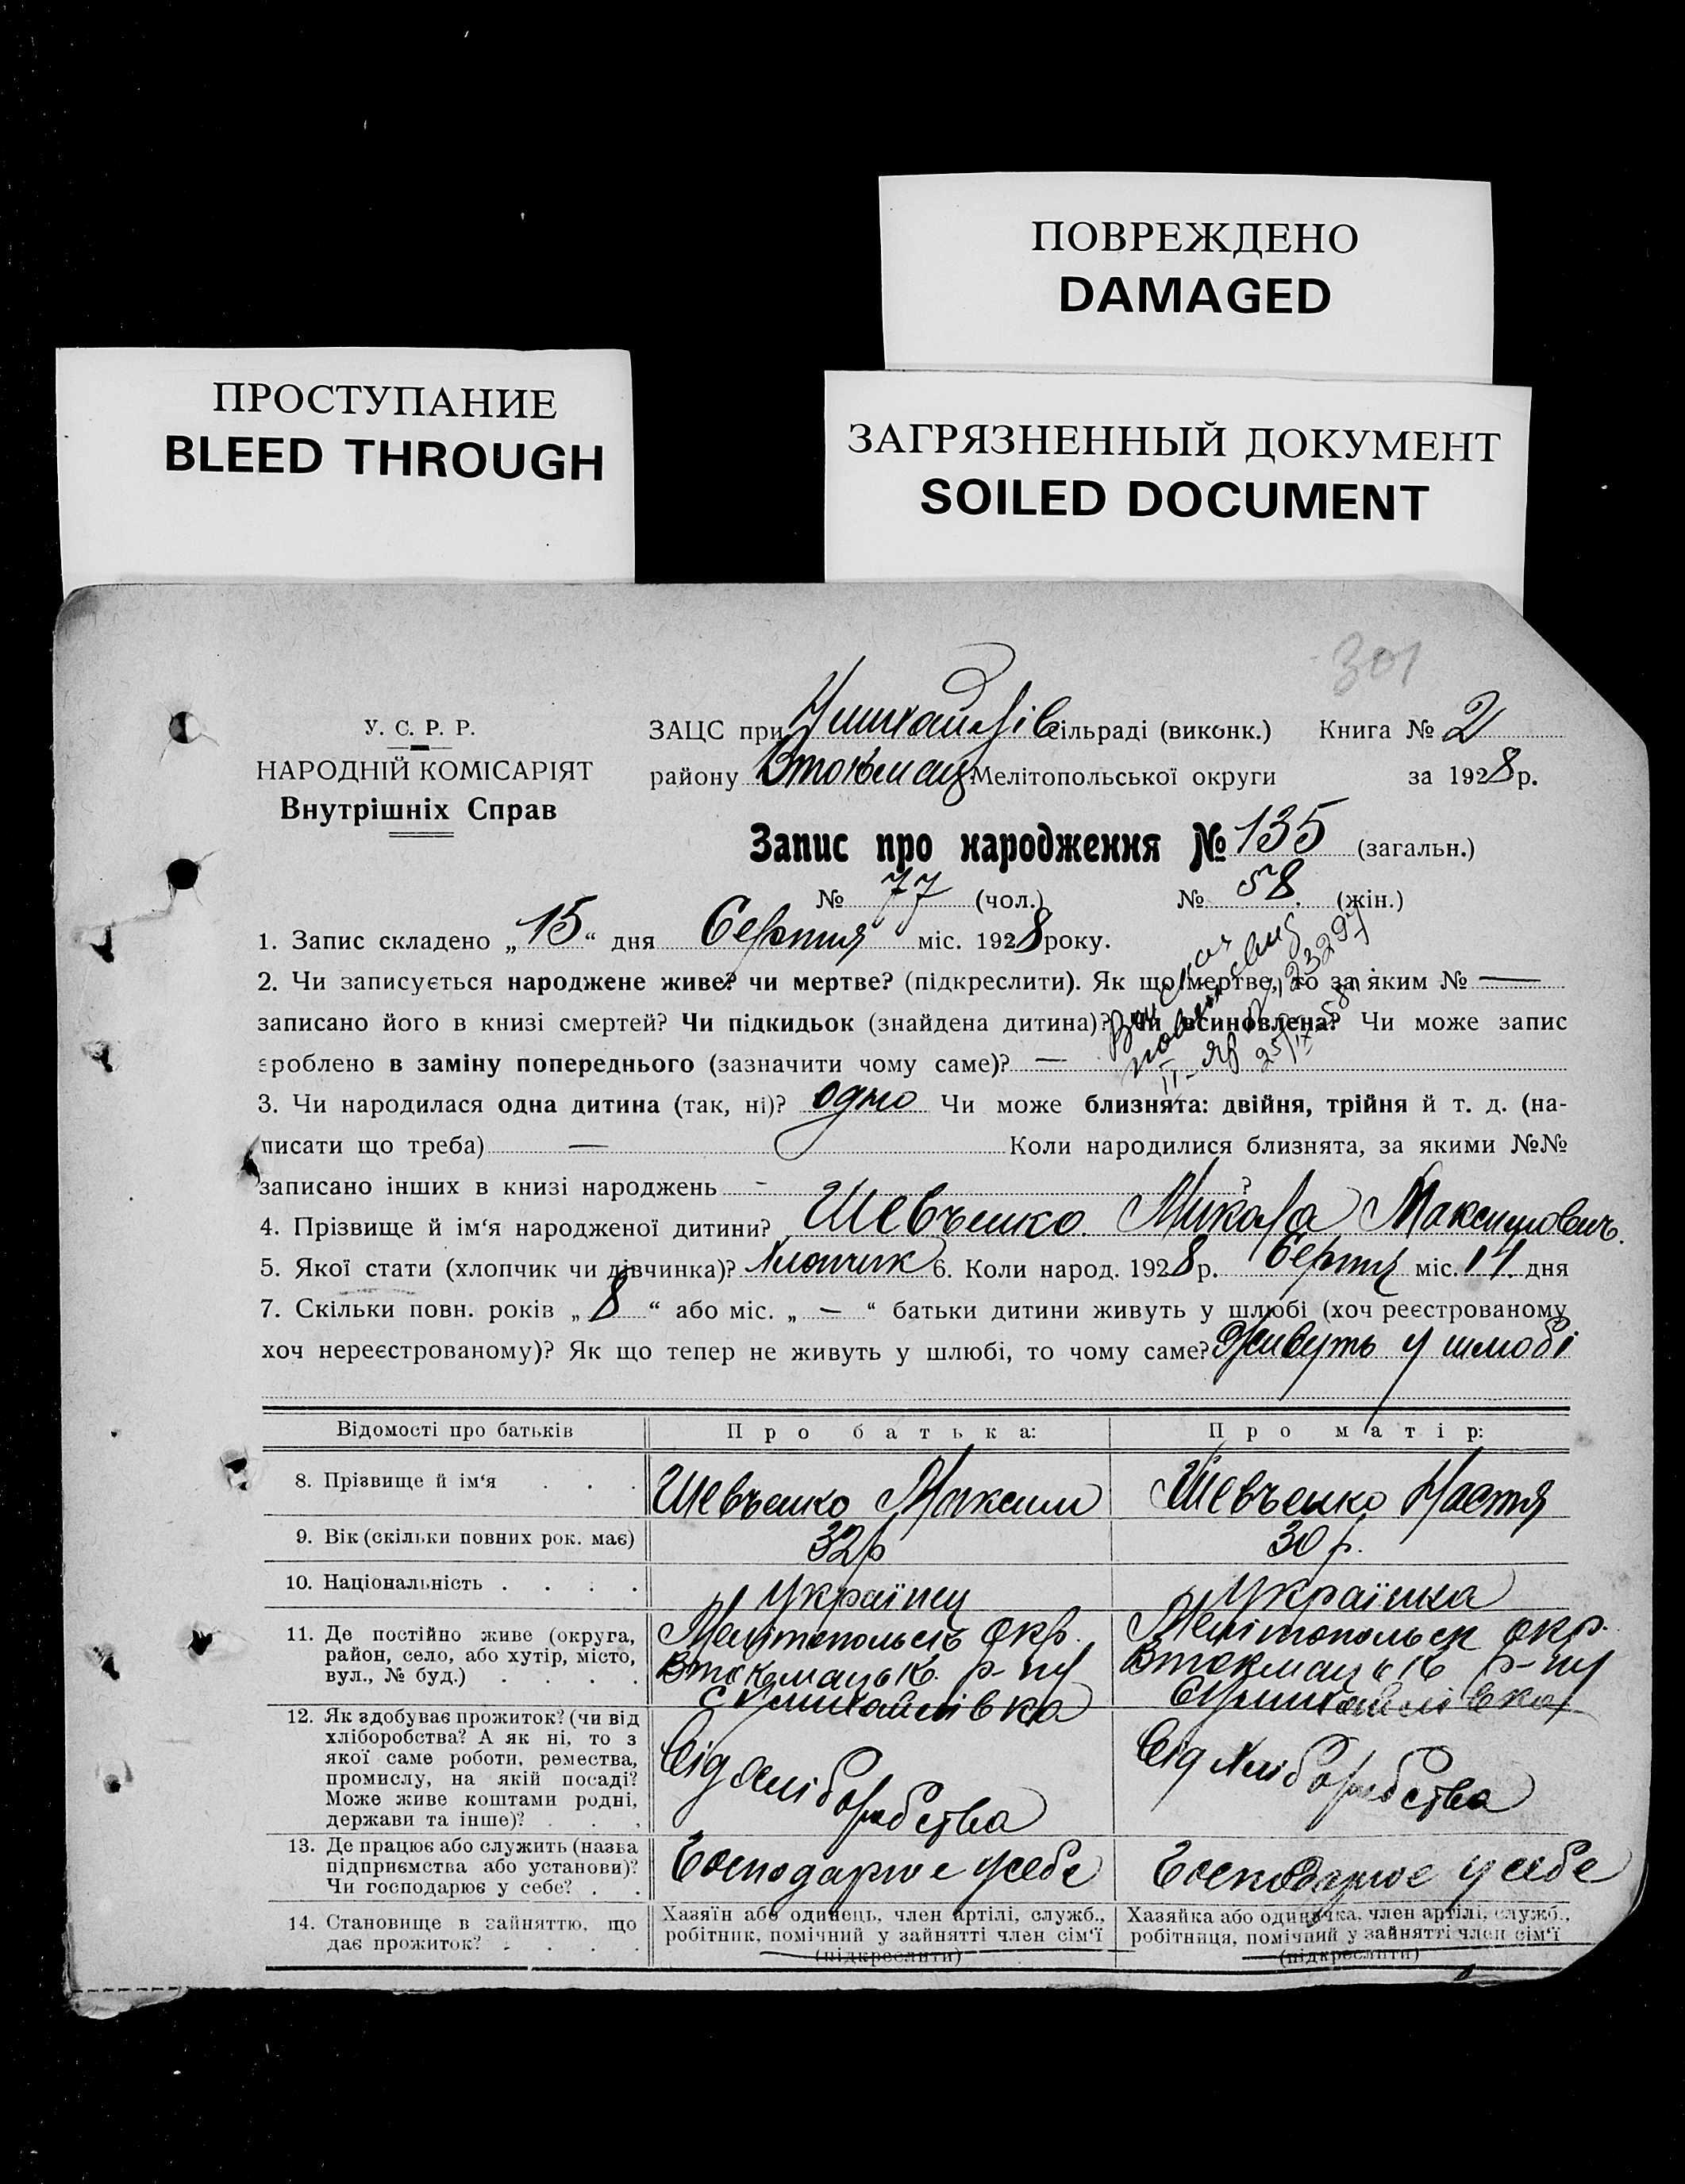 ПОВРЕЖДЕНО
DAMAGED
ПРОСТУПАНИЕ
BLEED THROUGH
ЗАГРЯЗНЕННЫЙ ДОКУМЕНТ
SOILED DOCUMENT
301
У. С. Р. Р.
НАРОДНІЙ КОМІСАРІЯТ
Внутрішніх Справ
ЗАЦС при сільраді (виконк.) Книга № 2
району Втокмац Мелітопольської округи за 1928 р.
Запис про народження № 135 (загальн.)
№ 77 (чол.) № 58. (жін.)
1. Запис складено „15“ дня Серпня міс. 1928 року.
2. Чи записується народжене живе? чи мертве? (підкреслити). Як що мертве, то за яким № —
записано його в книзі смертей? Чи підкидьок (знайдена дитина)? Чи всиновлена? Чи може запис
зроблено в заміну попереднього (зазначити чому саме)? —
3. Чи народилася одна дитина (так, ні)? одно Чи може близнята: двійня, трійня й т. д. (на-
писати що треба) — Коли народилися близнята, за якими №№
записано інших в книзі народжень - ?
4. Прізвище й ім‘я народженої дитини? Шевъенко. Микола Максимовичъ.
5. Якої стати (хлопчик чи дівчинка)? Хлопчик 6. Коли народ. 1928 р. Серпня міс. 14 дня
7. Скільки повн. років „8“ або міс. „—“ батьки дитини живуть у шлюбі (хоч реєстрованому
хоч нереєстрованому)? Як що тепер не живуть у шлюбі, то чому саме? Живуть у шлюбі
Відомості про батьків Про батька: Про матір:
8. Прізвище й ім‘я . . . Шевъенко Максим Шевъенко Настя
9. Вік (скільки повних рок. має) 32 р 30 р.
10. Національність . . . . Українец Українка
11. Де постійно живе (округа, район, село, або хутір, місто, вул., № буд.) . . . .
Мелітопольськ окр. Мелітопольск окр.
Втокмацьк. р-ну Втокмацьк р-ну
12. Як здобуває прожиток? (чи від
хліборобства? А як ні, то з
якої саме роботи, ремества,
промислу, на якій посаді?
Може живе коштами родні,
держави та інше)? . . .
Від хліборобства Від хліборобства
13. Де працює або служить (назва
підприємства або установи)?
Чи господарює у себе? . .
Господарює у себе Господарює у себе
14. Становище в зайняттю, що
дає прожиток? . . . .
Хазяїн або одинець, член артілі, служб.,
робітник, помічний у зайнятті член сім‘ї
(підкреслити)
Хазяйка або одиначка, член артілі, служб.,
робітниця, помічний у зайнятті член сім‘ї
(підкреслити)